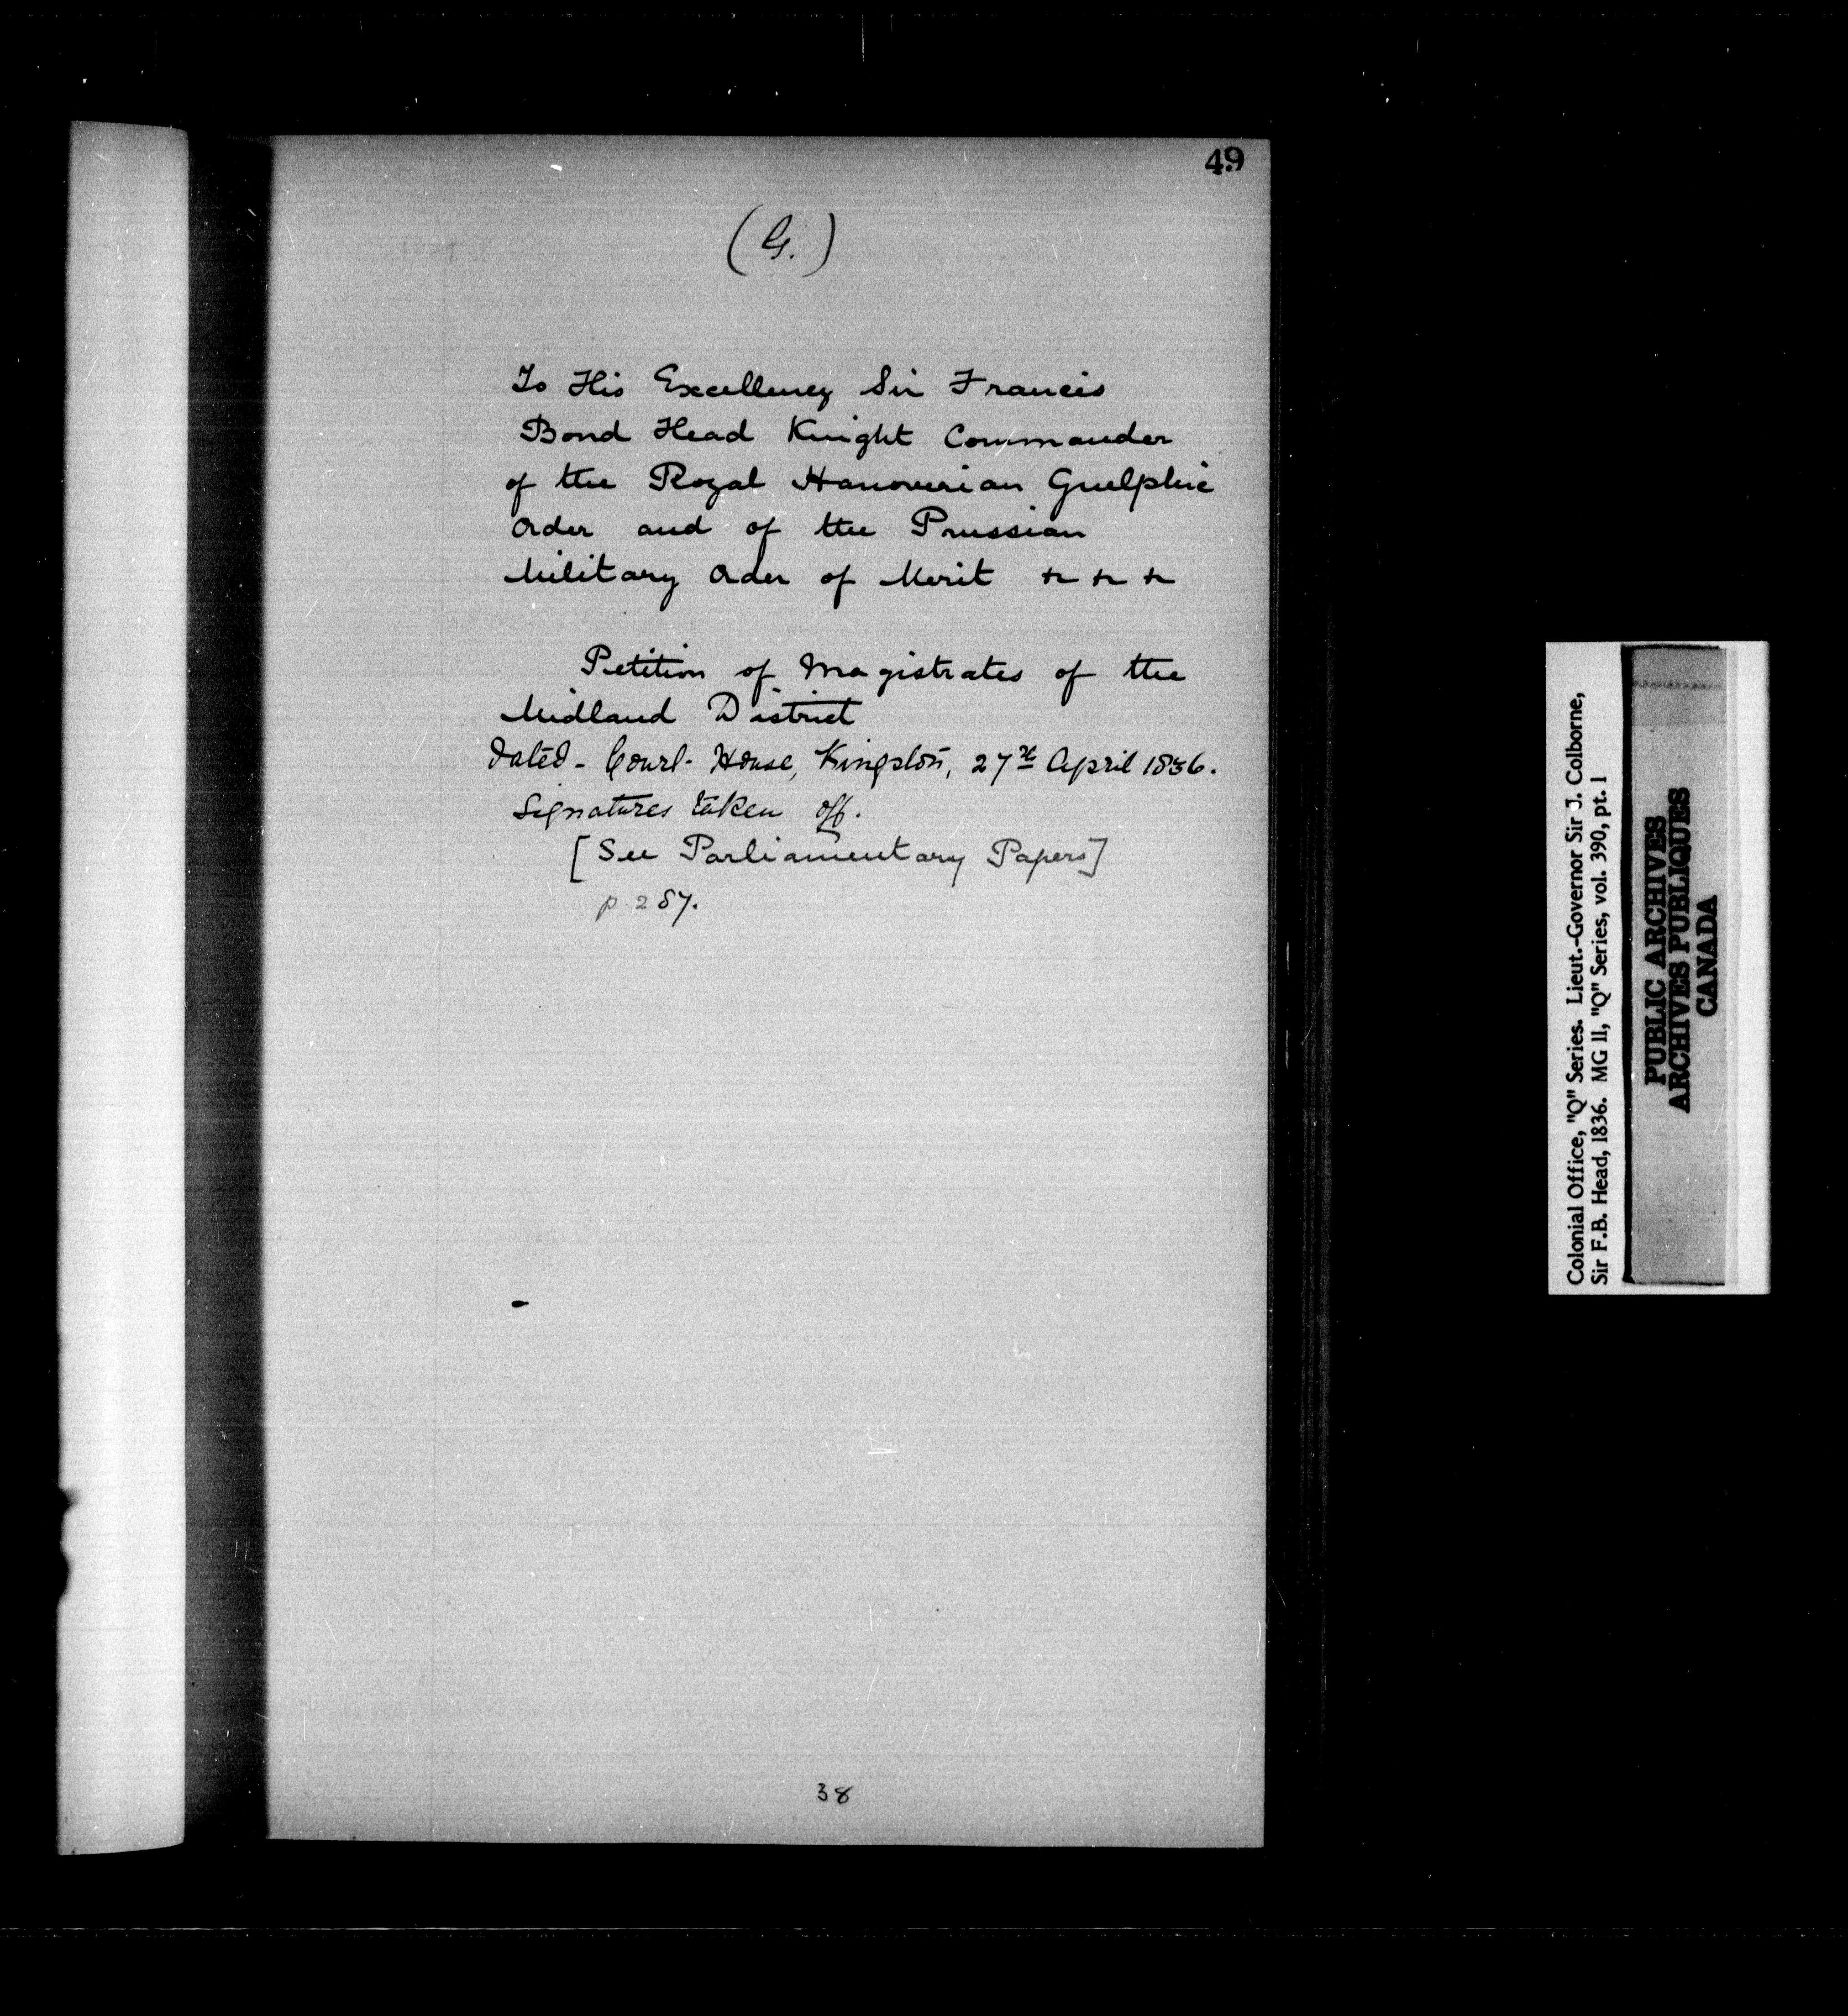 49
(G.)
To His Excellency Sir Francis
Bond Head Knight Commander
of the Royal Hanoverian Guelphic
Order and of the Prussian
Military Order of Merit &c &c &c
Petition of Magistrates of the
Midland District
Dated - Court-House, Kingston, 27th April 1836.
Signatures taken off.
[See Parliamentary Papers]
p 287.
38
Colonial Office, "Q" Series. Lieut.-Governor Sir J. Colborne,
Sir F.B. Head, 1836. MG 11, "Q" Series, vol. 390, pt. 1
PUBLIC ARCHIVES
ARCHIVES PUBLIQUES
CANADA